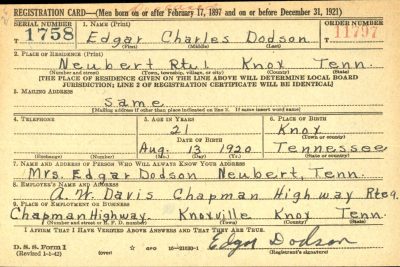 REGISTRATION CARD—(Men born on or after February 17, 1897 and on or before December 31, 1921)
SERIAL NUMBER 1. NAME (Print) ORDER NUMBER
T 1758 Edgar Charles Dodson 11797
(First) (Middle) (Last)
2. PLACE OF RESIDENCE (Print)
Neubert Rtu1 Knox Tenn.
(Number and street) (Town, township, village, or city) (County) (State)
[THE PLACE OF RESIDENCE GIVEN ON THE LINE ABOVE WILL DETERMINE LOCAL BOARD
JURISDICTION; LINE 2 OF REGISTRATION CERTIFICATE WILL BE IDENTICAL]
3. MAILING ADDRESS
Same
[Mailing address if other than place indicated on line 2. If same insert word same]
4. TELEPHONE 5. AGE IN YEARS 6. PLACE OF BIRTH
21 Knox
DATE OF BIRTH (Town or county)
Aug. 13 1920 Tennessee
(Exchange) (Number) (Mo.) (Day) (Yr.) (State or country)
7. NAME AND ADDRESS OF PERSON WHO WILL ALWAYS KNOW YOUR ADDRESS
Mrs. Edgar Dodson Neubert, Tenn.
8. EMPLOYER'S NAME AND ADDRESS
A. W. Davis Chapman Highway Rte9
9. PLACE OF EMPLOYMENT OR BUSINESS
Chapman Highway. Knoxville Knox Tenn.
(Number and street or R. F. D. number) (Town) (County) (State)
I AFFIRM THAT I HAVE VERIFIED ABOVE ANSWERS AND THAT THEY ARE TRUE.
D. S. S. Form 1 Edgar Dodson
(Revised 1-1-42) (over) (Registrant's signature)